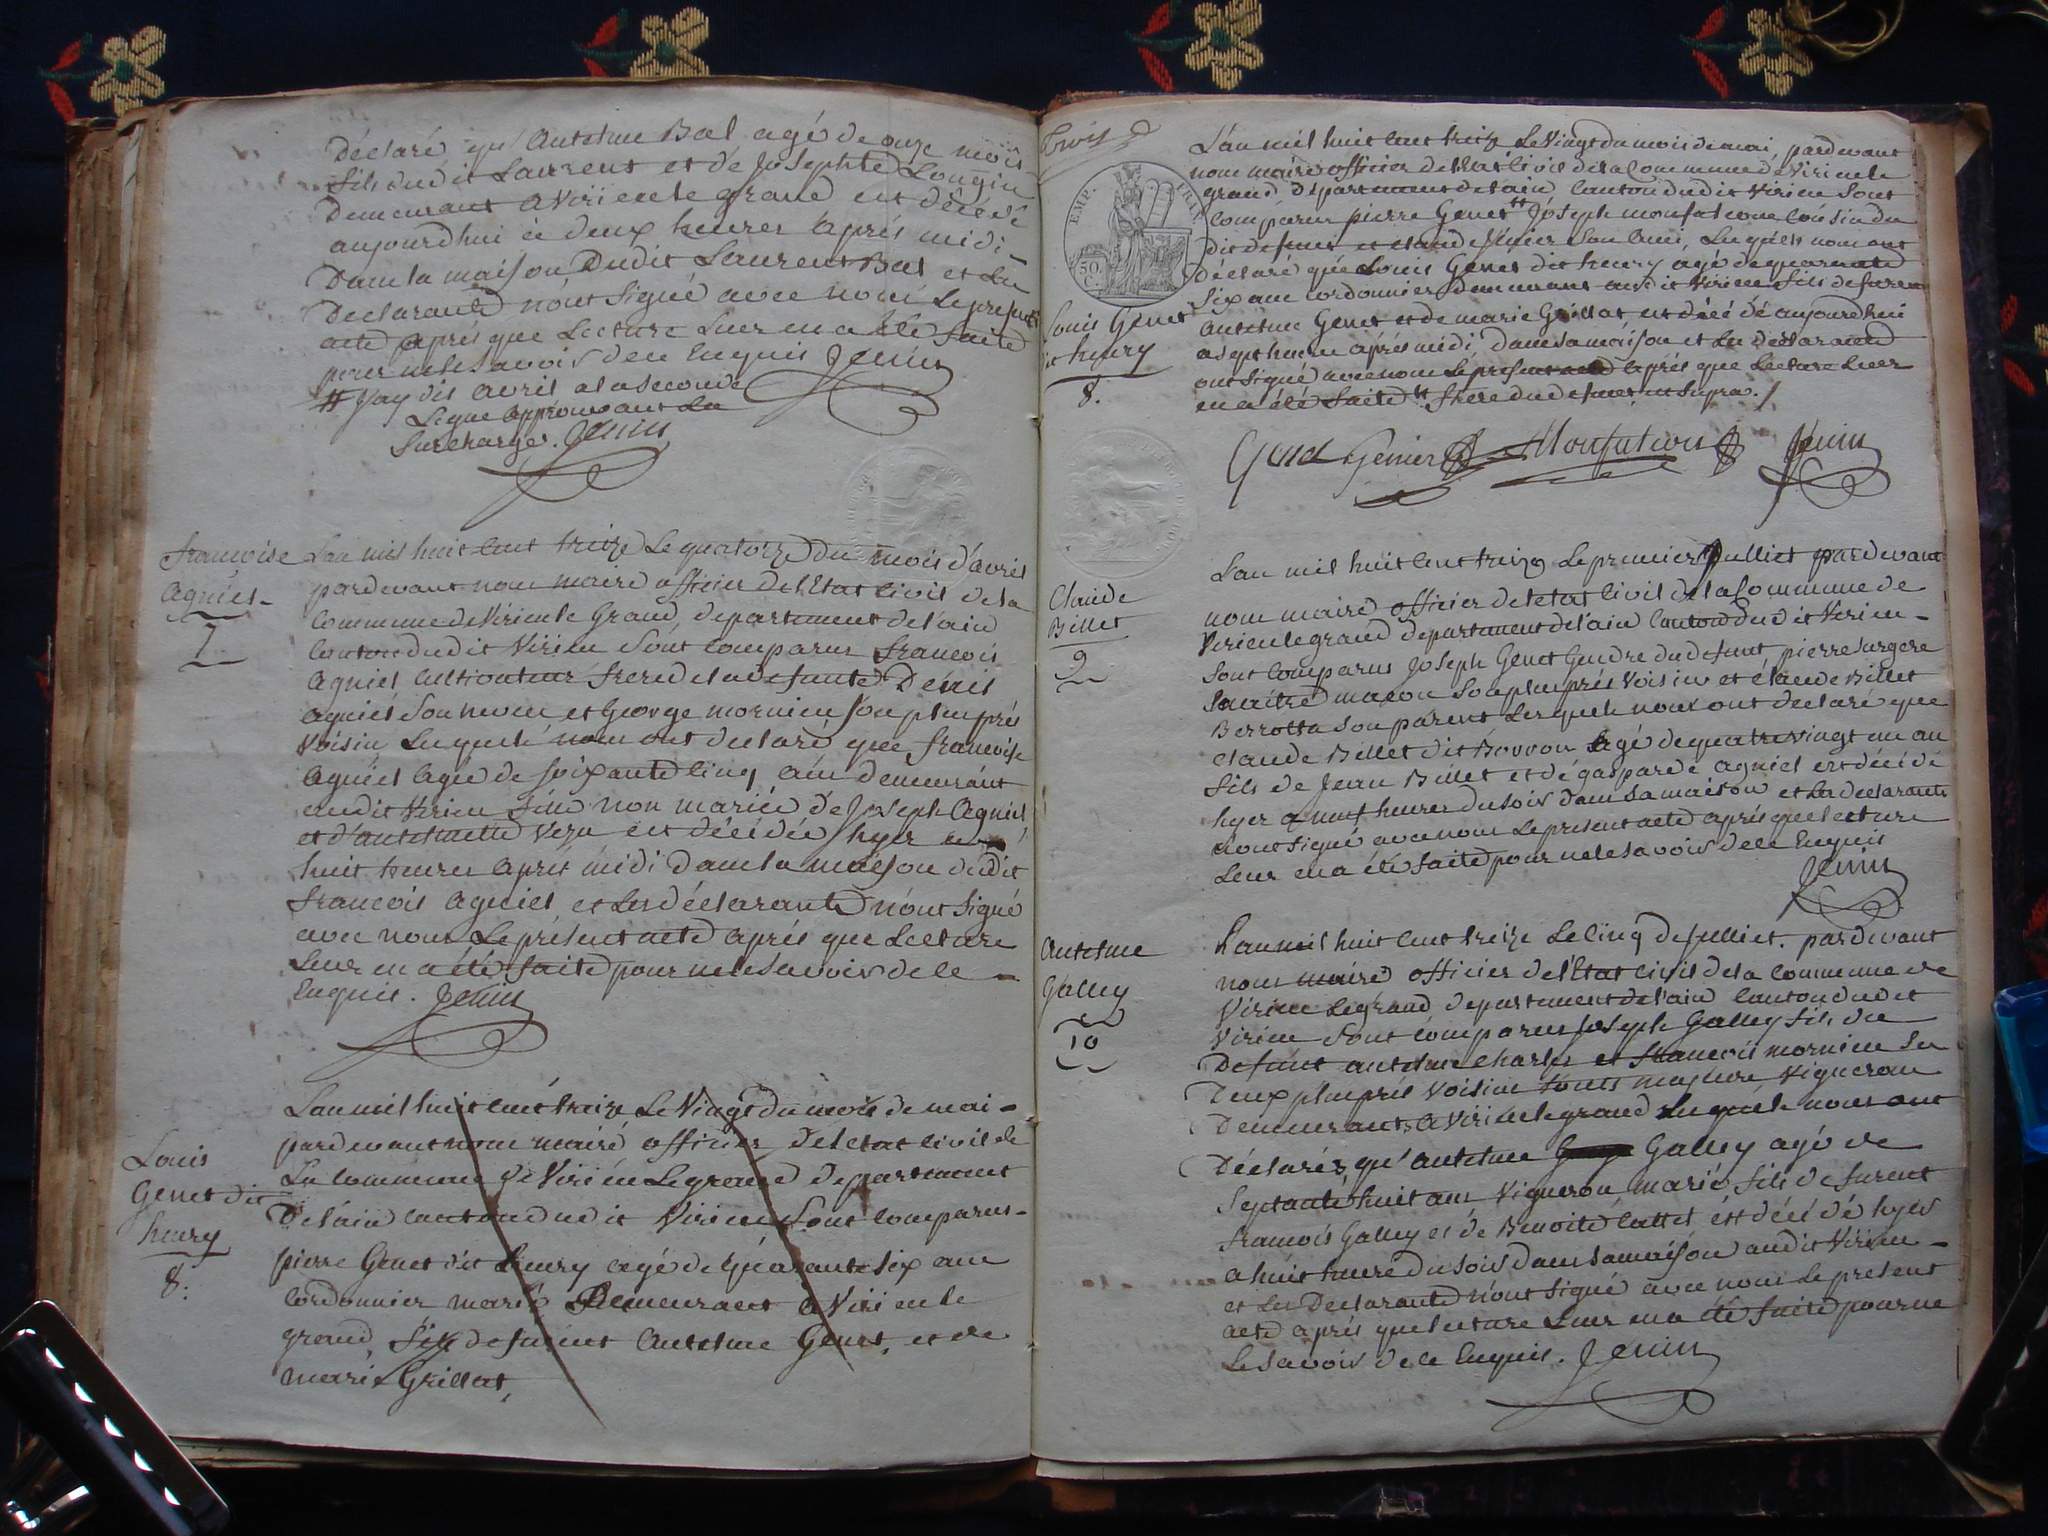 Déclaré qu'antelme Bal agé de onze mois
fils dudit Laurent et de Josephte Longin
Demeurant a Virieu le grand est décédé
aujourdhui à deux heures après midi
Dans la maison Dudit Laurent Bal et les
Declarants n'ont Signé avec nous le present
acte après que Lecture Leur en a été faite
pour ne le Savoir de ce Enquis Jenin
# Jay dit avril a la seconde
Ligne approuvant la
Surcharge. Jenin
francoise
agniel
7
Lan mil huit cent treize Le quatorze du mois d'avril
pardevant nous maire officier de l'Etat Civil de la
Commune de Virieu le Grand, departement de l'ain
Canton dudit Virieu Sont Comparus francois
agniel Cultivateur frere de la defunte Denis
agniel Son neveu et George mornieu Son plus près
Voisin Lesquels nous ont declaré que francoise
agniel agée de soixante Cinq ans demeurant
audit Virieu fille non mariée de Joseph Agniel
et d'antelmette est décédée hyer
huit heures après midi Dans la maison dudit
francois agniel et les déclarants n'ont Signé
avec nous Le présent acte après que Lecture
Leur en a été faite pour ne le Savoir de ce
Enquis. Jenin
Louis
Genet dit
henry
8.
Lan mil huit cent treize Le Vingt du mois de mai
pardevant nous maire officier de l'Etat Civil de
La Commune de Virieu Le grand Departement
De l'ain Canton dudit Virieu Sont Comparus
pierre Genet dit henry agé de quarante six ans
Cordonnier marié Demeurant a Virieu le
grand, fils de furent Antelme Genet, et de
marie Grillat,
Trois
EMP. FRAN.
50 C.
Louis Genet
dit henry
8.
L'an mil huit cent treize Le Vingt du mois de mai, pardevant
nous maire officier de l'Etat Civil de la Commune de Virieu le
grand Département de l'ain Canton dudit Virieu Sont
Comparus pierre Genet # Joseph monfalcone Cousin du
dit defunt et claude Genier Son ami, Lesquels nous ont
déclaré que Louis Genet dit henry agé de quarante
Six ans Cordonnier demeurant audit Virieu fils de furent
antelme Genet et de marie Grillat est décédé aujourdhui
a sept heures après midi dans sa maison et les Declarants
ont Signé avec nous le présent acte après que Lecture Leur
en a été faite # frere dudefunt ut Supra.
Genet Genier Monfalcon Jenin
Claude
Billet
9
Lan mil huit cent treize Le premier Julliet pardevant
nous maire officier de l'etat Civil de la Commune de
Virieu le grand departement de l'ain Canton dudit Virieu
Sont Comparus Joseph Genet Gendre du defunt pierre
macon Son plus près Voisin et claude Billet
Son parent Lesquels nous ont declaré que
claude Billet dit agé de quatre vingt un an
fils de Jean Billet et de gasparde agniel est décédé
hyer a neuf heures du soir dans Sa maison et les declarants
n'ont signé avec nous Le present acte après que lecture
Leur en a été faite pour ne le Savoir de ce Enquis
Jenin
Antelme
Galley
10
Lan mil huit cent treize Le Cinq de Julliet. pardevant
nous maire officier de l'Etat Civil de la Commune de
Virieu Le grand departement de l'ain Canton dudit
Virieu Sont Comparus Joseph Galley fils du
Defunt antelme Charles et francois mornieu les
Deux plus près Voisins touts majeurs Vignerons
Demeurants a Virieu le grand Lesquels nous ont
Déclarés qu'antelme Galley agé de
Septante huit ans Vigneron marié fils de furent
francois Galley et de Benoite Cattel est décédé hyer
a huit heures du soir dans sa maison audit Virieu
et les Declarants n'ont Signé avec nous Le present
acte après que lecture Leur en a été faite pour ne
Le Savoir de ce Enquis. Jenin